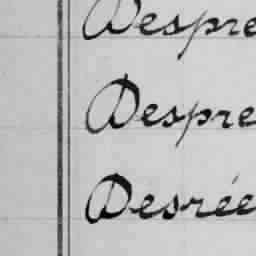 Despre
Despre
Desrée